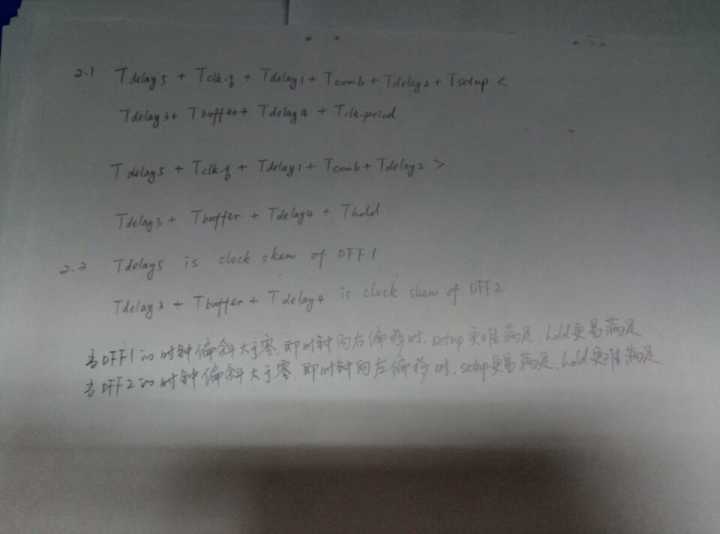 2.1 Tdelay5 + Tclk-q + Tdelay1 + Tcomb + Tdelay2 + Tsetup <
Tdelay3 + Tbuffer + Tdelay4 + Tclk-period
Tdelay5 + Tclk-q + Tdelay1 + Tcomb + Tdelay2 >
Tdelay3 + Tbuffer + Tdelay4 + Thold
2.2 Tdelay5 is clock skew of DFF1
Tdelay3 + Tbuffer + Tdelay4 is clock skew of DFF2
当DFF1的时钟偏斜大于零,即时钟向右偏移时,setup更难满足,hold更易满足
当DFF2的时钟偏斜大于零,即时钟向右偏移时,setup更易满足,hold更难满足